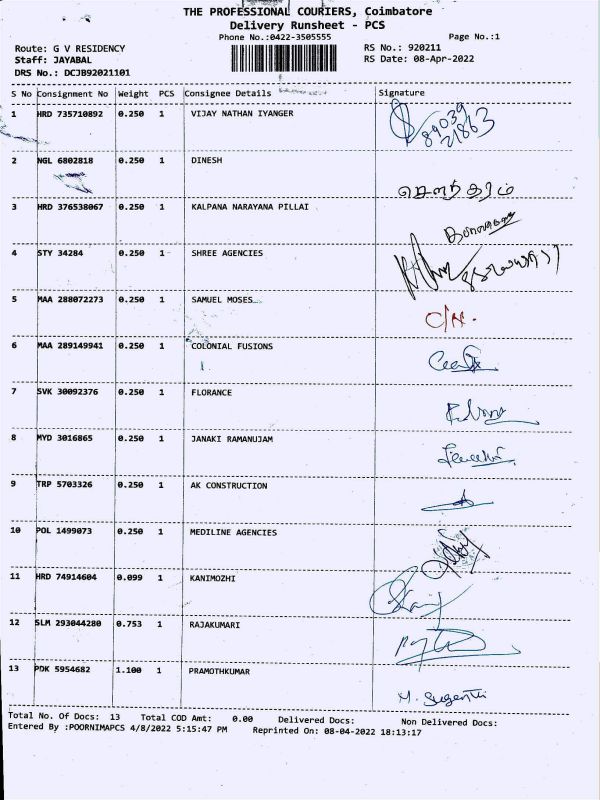 THE PROFESSIONAL COURIERS, Coimbatore
Delivery Runsheet - PCS
Phone No.:0422-3505555
Page No.:1
Route: G V RESIDENCY
RS No.: 920211
Staff: JAYABAL
RS Date: 08-Apr-2022
DRS No.: DCJB92021101
S No Consignment No Weight PCS Consignee Details Signature
1 HRD 735710892 0.250 1 VIJAY NATHAN IYANGER
89039
21863
2 NGL 6802818 0.250 1 DINESH
சௌந்தரம்
3 HRD 376538067 0.250 1 KALPANA NARAYANA PILLAI
4 STY 34284 0.250 1 SHREE AGENCIES
5 MAA 288072273 0.250 1 SAMUEL MOSES
C/N.
6 MAA 289149941 0.250 1 COLONIAL FUSIONS
7 SVK 30092376 0.250 1 FLORANCE
8 MYD 3016865 0.250 1 JANAKI RAMANUJAM
9 TRP 5703326 0.250 1 AK CONSTRUCTION
10 POL 1499073 0.250 1 MEDILINE AGENCIES
11 HRD 74914604 0.099 1 KANIMOZHI
12 SLM 293044280 0.753 1 RAJAKUMARI
13 PDK 5954682 1.100 1 PRAMOTHKUMAR
M. Sugenthi
Total No. Of Docs: 13 Total COD Amt: 0.00 Delivered Docs: Non Delivered Docs:
Entered By :POORNIMAPCS 4/8/2022 5:15:47 PM Reprinted On: 08-04-2022 18:13:17